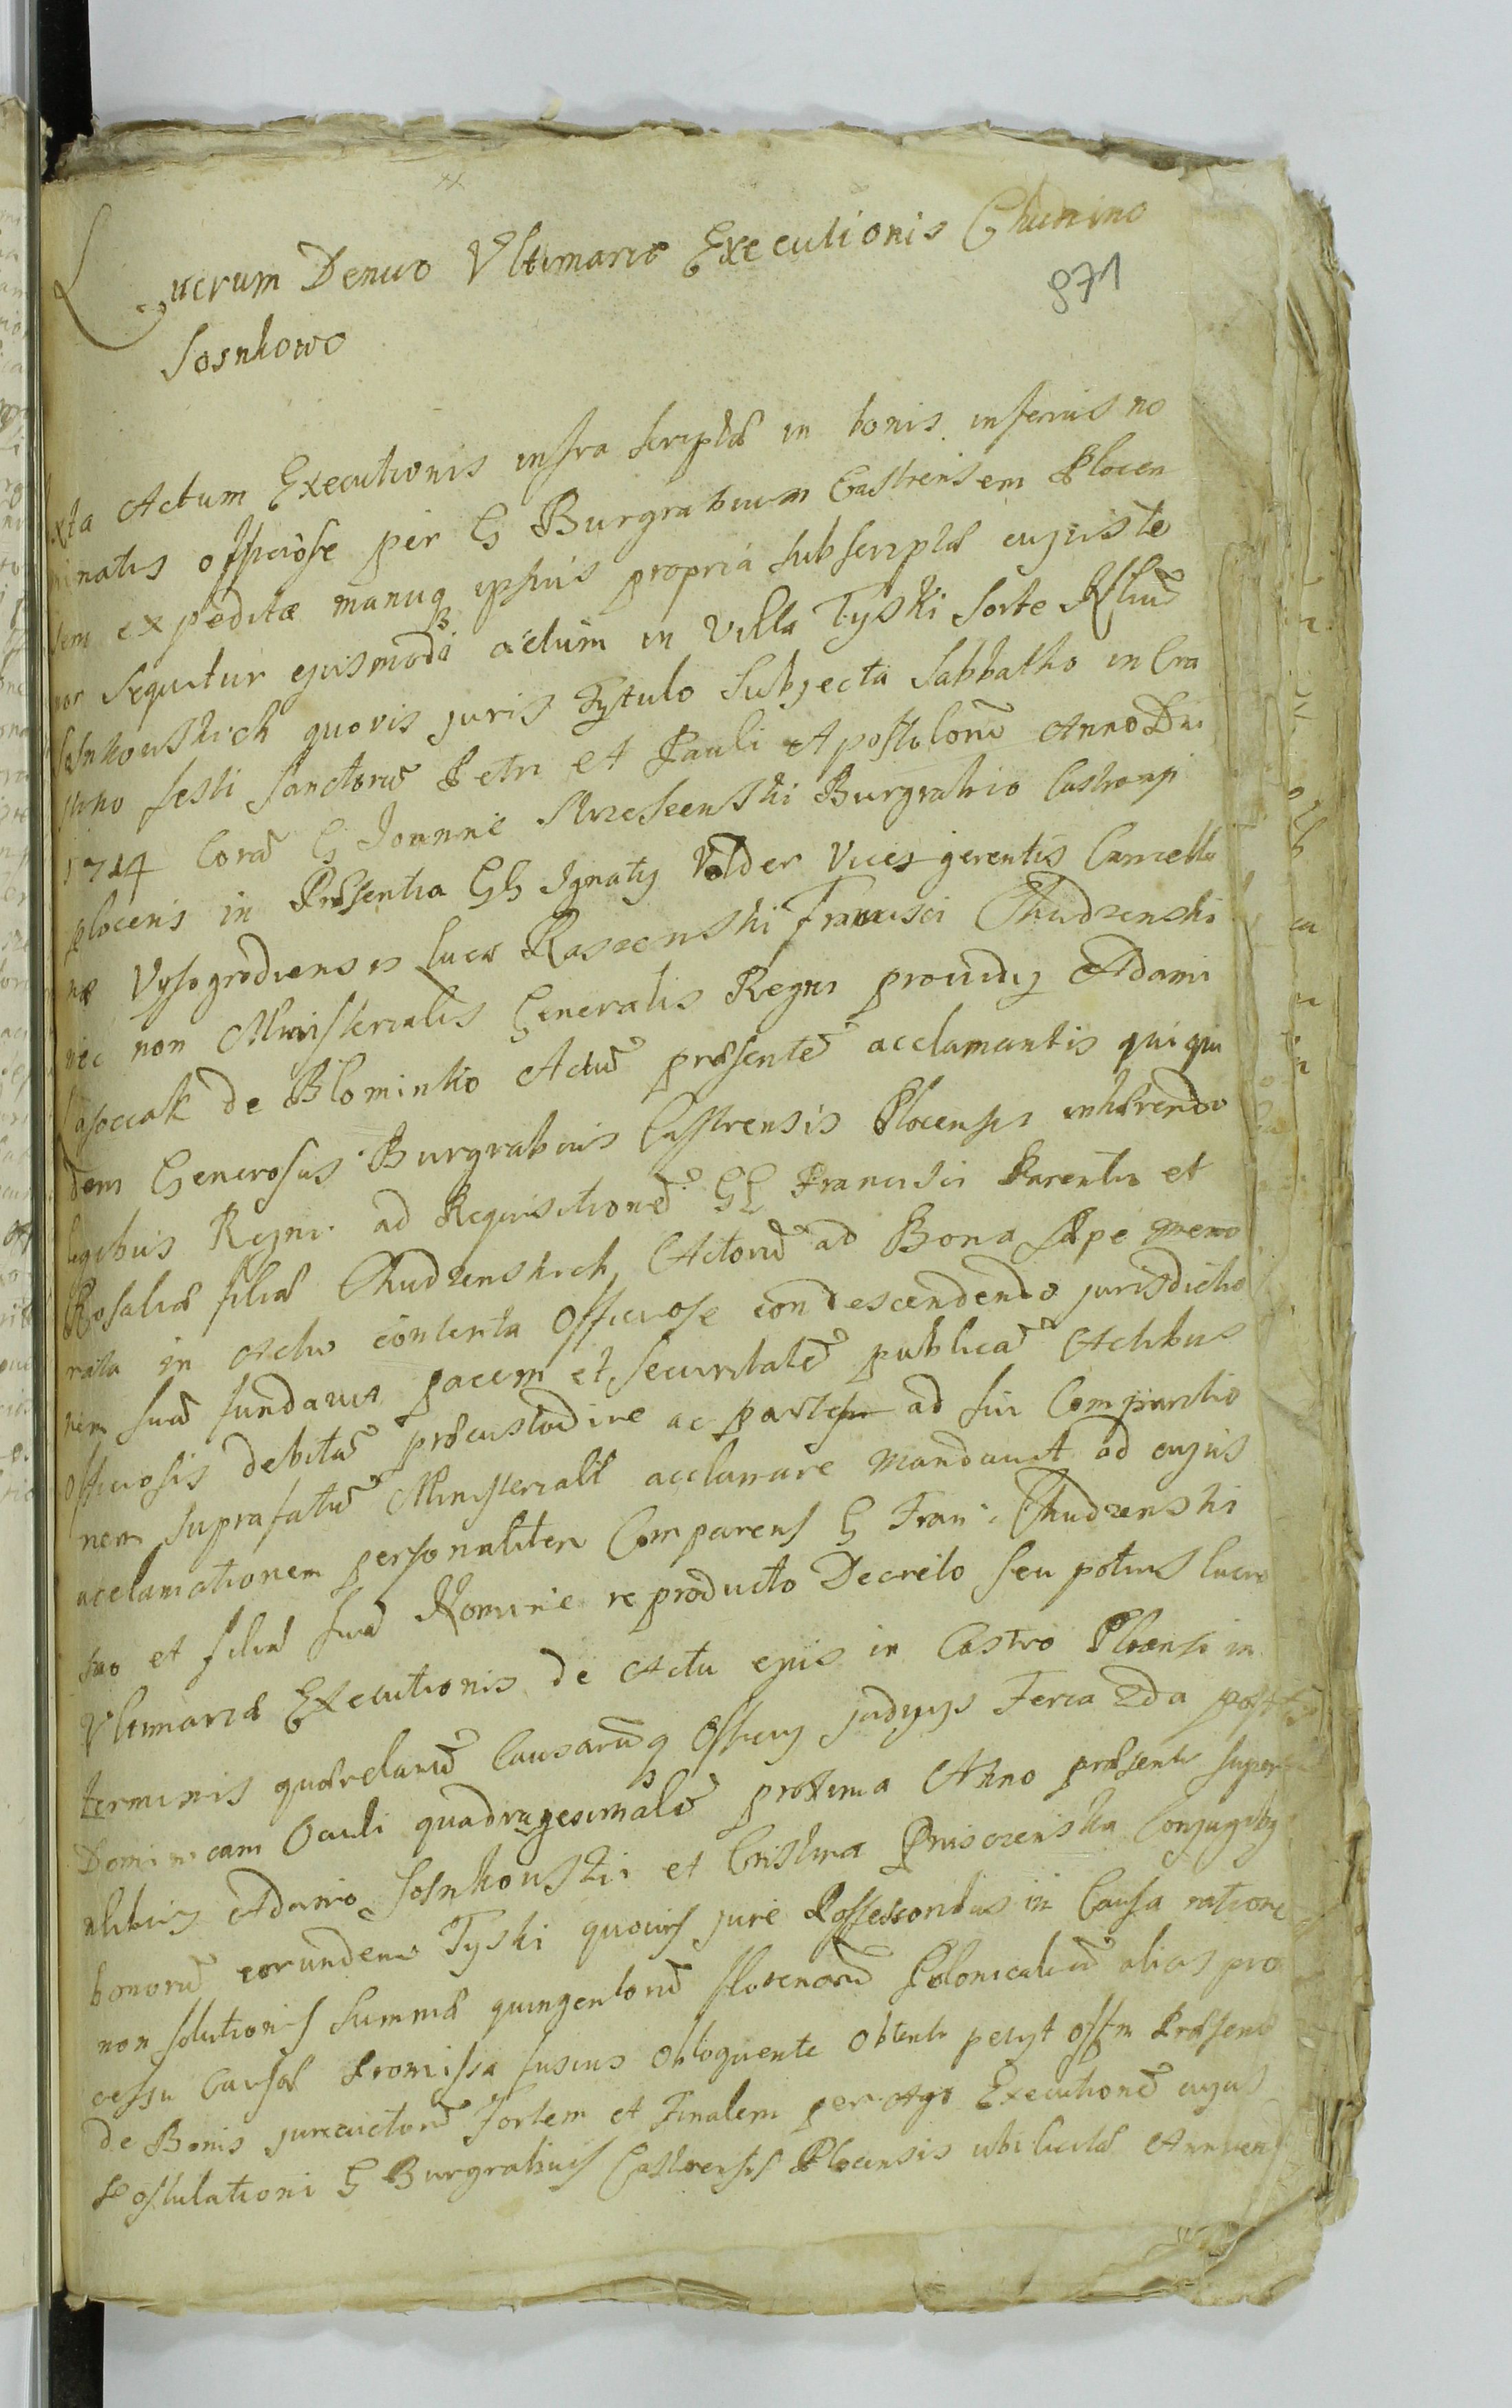 Lucrum Denuo Ultimariæ Executionis Chudzino
871
Sosnkowo
xta Actum Executionis infra scriptæ in bonis inferius no
minatis officiose per G Burgrabium Castrensem Plocen
sem expeditæ manuq ipsius propria subscriptæ cujus te
nor sequitur ejusmodi actum in Villa Tyski sorte Nliu͠
Sosnkowskich quovis juris Tytulo subjecta Sabbatho in Cra
stino festi Sanctoru͠ Petri et Pauli Apostoloru͠ Anno Dni
1724 Cora͠ G Joanne Burgrabio Castrensi
plocens in Præsentia GG Ignatij Volder Vices gerentis Cancella
riæ Vysogrodiensis Lucæ Raszenski Francisci Chudzenski
nec non Ministerialis Generalis Regni providi Adami
de Blominko Actu͠ præsente͠ acclamantis qui qui
dem Generosus Burgrabius Castrensis Plocensis inhærendo
legibus Regni ad Requisitione͠ GG Francisci Parentis et
Rosaliæ filiæ Chudzenskich Actoru͠ ad Bona sæpe memo
rata in Actu contenta Officiose condescendendo jurisdictio
nem sua͠ fundavit pacem et securitate͠ publica͠ Actibus
Officiosis debita͠ præcustodire ac partes ad sui Comparitio
nem suprafatu͠ Ministeriale͠ acclamare mandavit ad cujus
acclamationem personaliter Comparens G Fran: Chudzenski
suo et filiæ suæ Nomine reproducto Decreto seu potius lucro
Ultimariæ Executionis de Actu ejus in Castro Plocensi in
terminis querelaru͠ Causaru͠q Officij judicijs Feria 2da post
Dominicam Oculi quadragesimale͠ proxima Anno præsenti super
nlibus Adamo Sosnkowski et Cristina Conjugibq
bonoru͠ eorundem Tyski quovis jure Possessoribus in Causa ratione
non solutionis Summæ quingentoru͠ florenoru͠ Polonicaliu͠ alias pro
cessu Causæ Promissa fusius obloquente obtento petijt offm Præsens
de Bonis Fortem et Finalem peragi Executione͠ cujus
Postulationi G Burgrabius Castrensis Plocensis uti licitæ Annuens